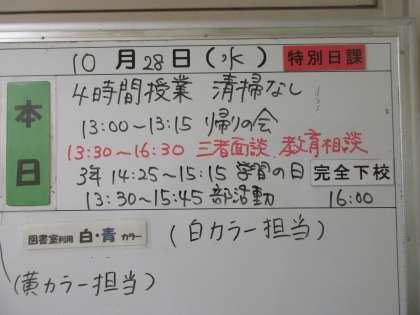 10月28日(水) 特別日課
本日
4時間授業 清掃なし
13:00~13:15 帰りの会
13:30~16:30 三者面談、教育相談
3年 14:25~15:15 学習の日 完全下校
13:30~15:45 部活動 16:00
図書室利用 白・青 カラー (白カラー担当)
(黄カラー担当)